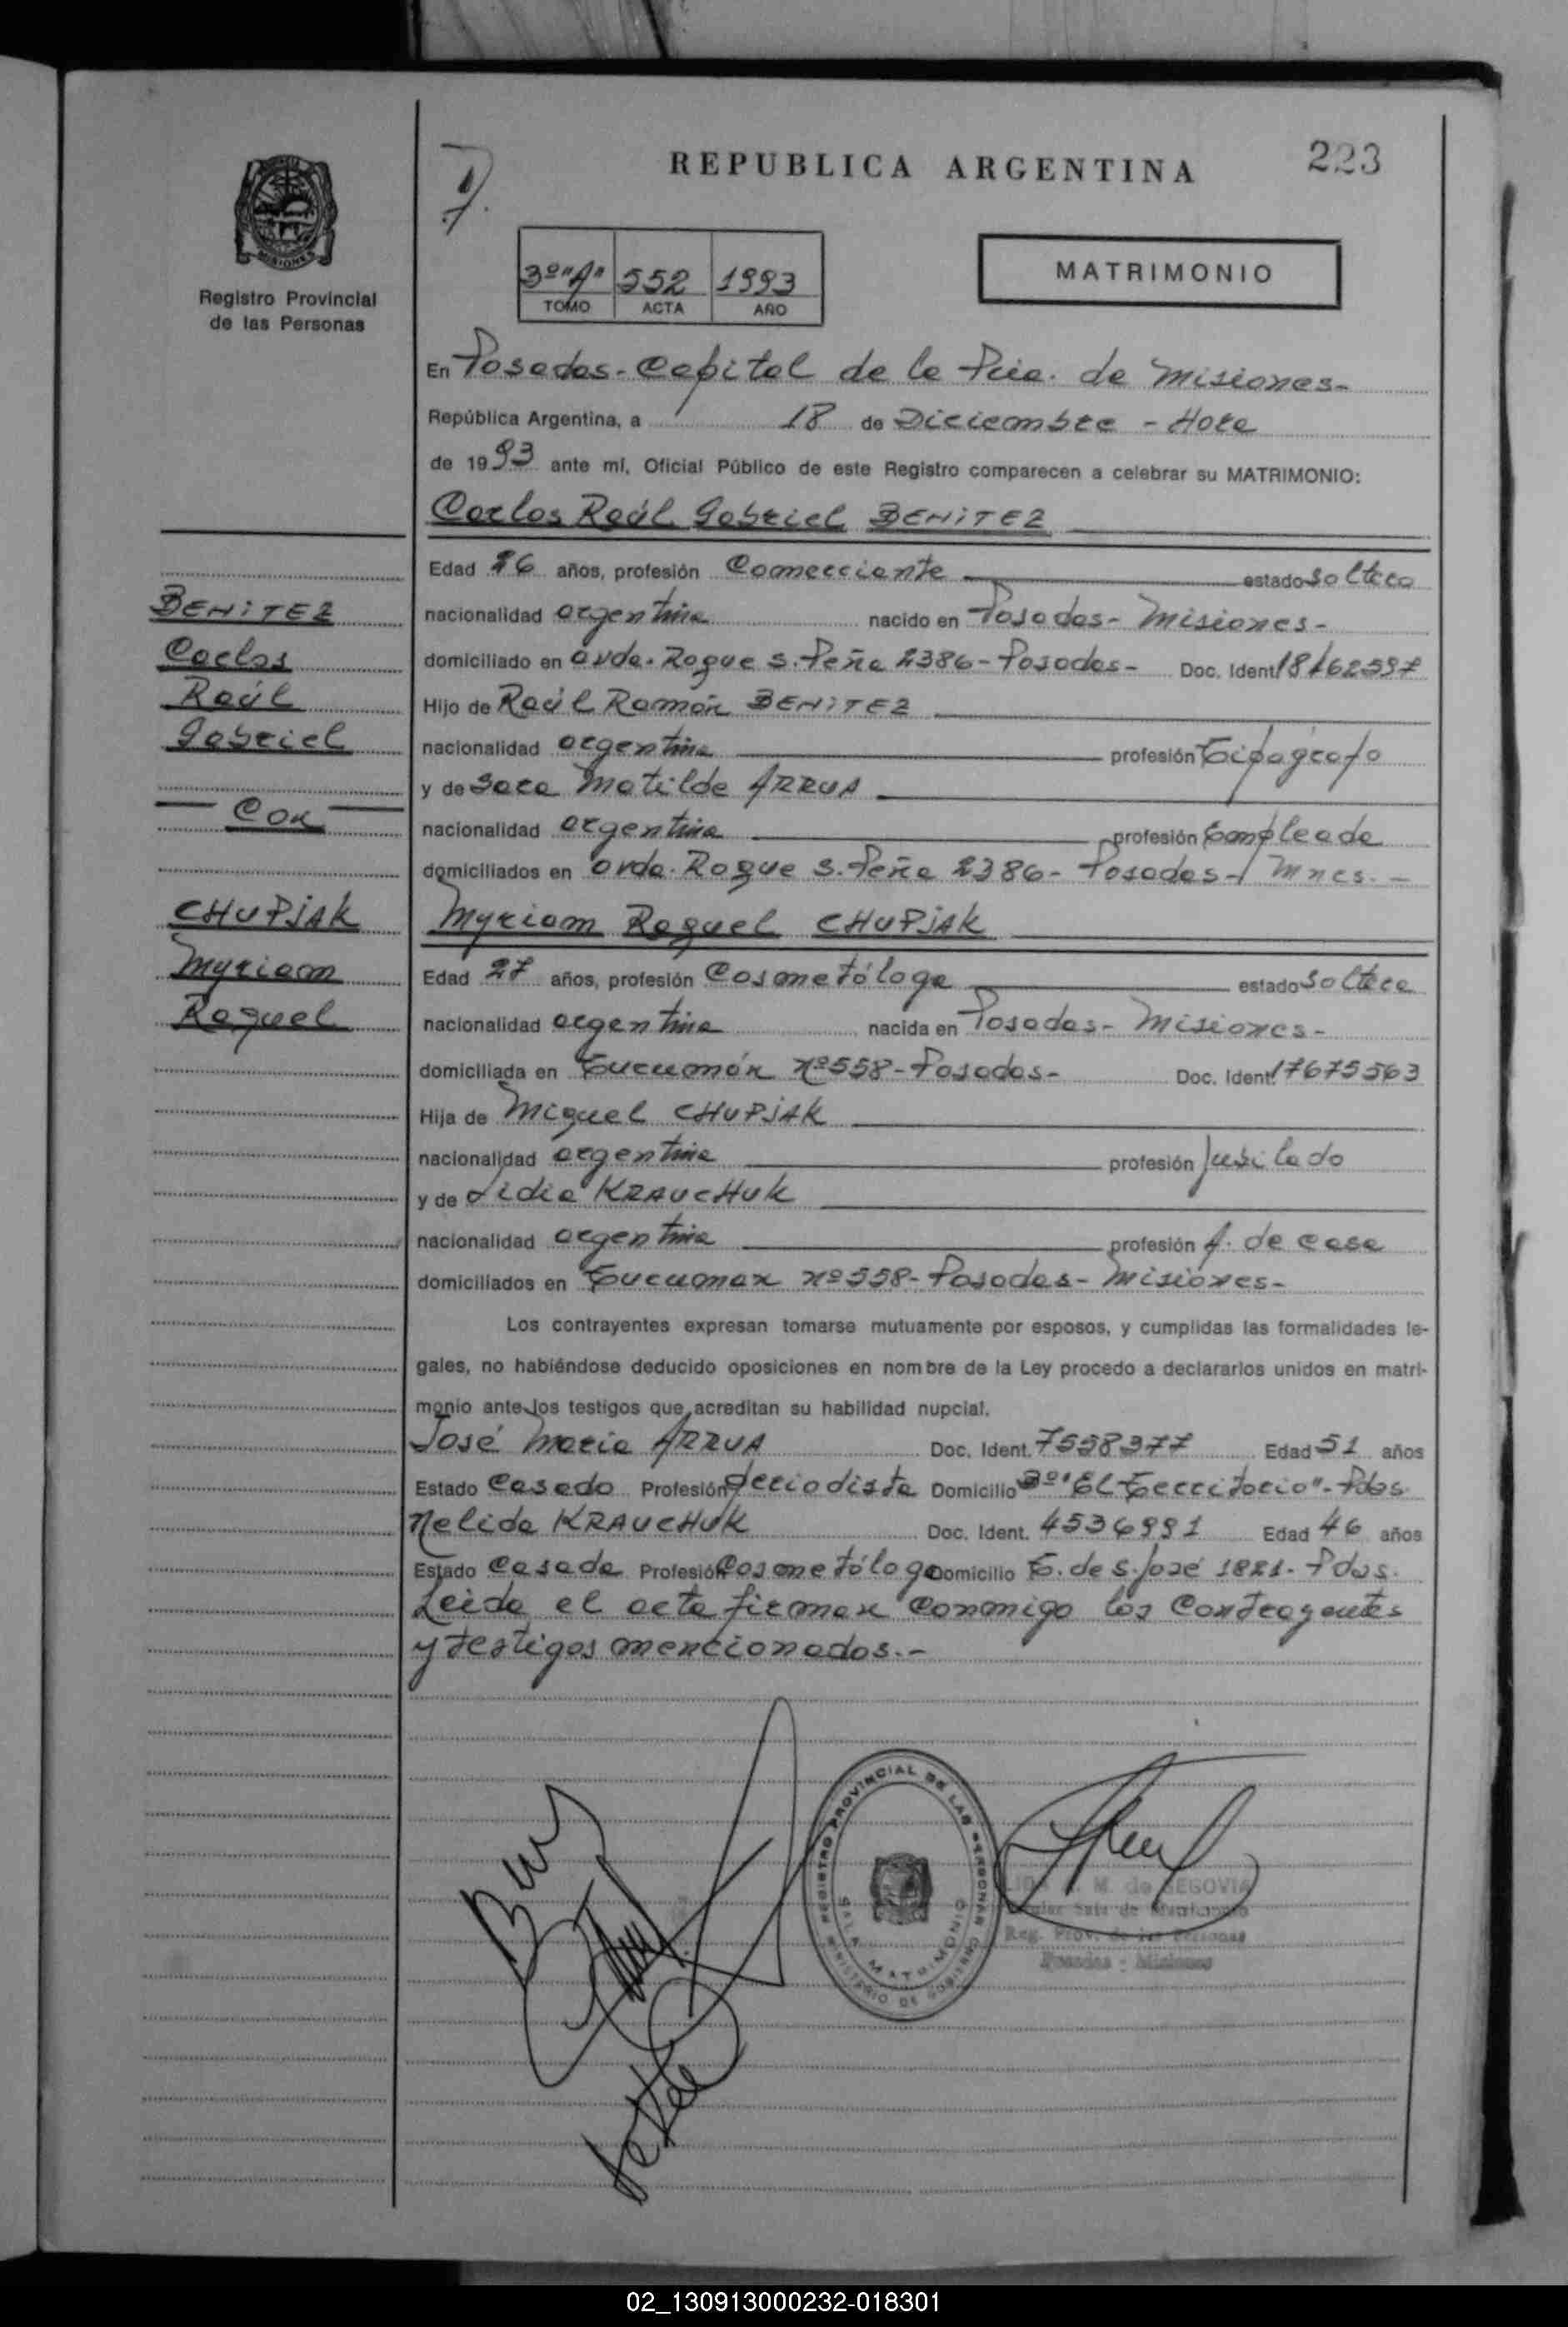 REPUBLICA ARGENTINA
223
MISIONES
Registro Provincial
de las Personas
3º "A" 552 1993
TOMO ACTA AÑO
MATRIMONIO
En Posadas - Capital de la Pcia. de Misiones -
República Argentina, a 18 de Diciembre - Hora
de 1993 ante mí, Oficial Público de este Registro comparecen a celebrar su MATRIMONIO:
Carlos Raúl Gabriel BENiTEZ
Edad 26 años, profesión Comerciante estado soltero
nacionalidad argentina nacido en Posadas - Misiones -
domiciliado en avda. Roque S. Peña 2386 - Posadas - Doc. Ident. 18162597
Hijo de Raúl Ramón BENiTEZ
nacionalidad argentina profesión Tipógrafo
y de Sara Matilde ARRUA
nacionalidad argentina profesión Empleada
domiciliados en avda. Roque S. Peña 2386 - Posadas - Mnes. -
BENiTEZ
Carlos
Raúl
Gabriel
- Con -
CHUPJAK
Myriam
Raquel
Myriam Raquel CHUPJAK
Edad 27 años, profesión Cosmetóloga estado soltera
nacionalidad argentina nacida en Posadas - Misiones -
domiciliada en Tucumán Nº 558 - Posadas - Doc. Ident. 17675563
Hija de Miguel CHUPJAK
nacionalidad argentina profesión Jubilado
y de Lidia KRAUCHUK
nacionalidad argentina profesión A. de casa
domiciliados en Tucuman Nº 558 - Posadas - Misiones -
Los contrayentes expresan tomarse mutuamente por esposos, y cumplidas las formalidades le-
gales, no habiéndose deducido oposiciones en nombre de la Ley procedo a declararlos unidos en matri-
monio ante los testigos que acreditan su habilidad nupcial.
José Maria ARRUA Doc. Ident. 7558377 Edad 51 años
Estado Casado Profesión Periodista Domicilio Bº "El Territorio" - Pdas.
Nelida KRAUCHUK Doc. Ident. 4536991 Edad 46 años
Estado Casada Profesión Cosmetóloga Domicilio T. de S. José 1821 - Pdas.
Leida el acta firman conmigo los contrayentes
y testigos mencionados. -
REGISTRO PROVINCIAL DE LAS PERSONAS
SALA MATRIMONIO
MINISTERIO DE GOBIERNO
M. de SEGOVIA
Sala de Matrimonio
Reg. Prov. de las Personas
Posadas - Misiones
02_130913000232-018301